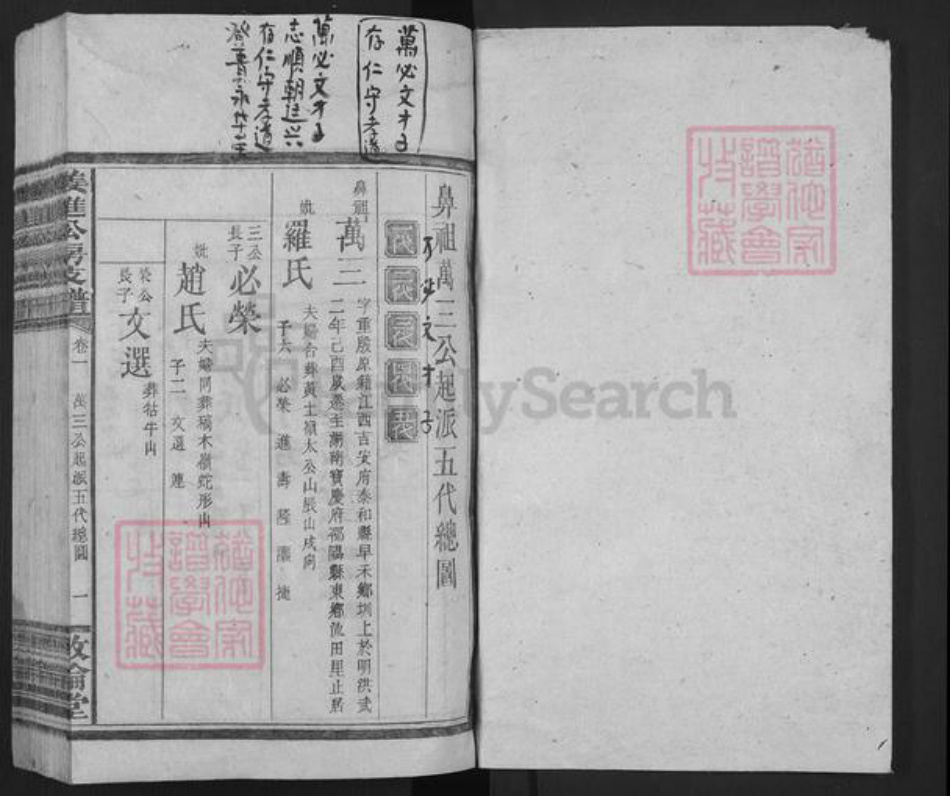 萬必文才子
存仁守孝道
萬必文才子
志順朝廷興
存仁守孝道
鼻祖萬三公起派五代總圖
萬必文才子
鼻祖萬三
字重殷原籍江西吉安府泰和縣早禾鄉圳上於明洪武
二年己酉歲遷至湖南寶慶府邵陽縣東鄉流田里止居
妣羅氏
夫婦合葬黃土嶺太公山辰山戌向
子六 必榮 進 壽 隆 捷
三公長子必榮
妣趙氏
夫婦同葬木嶺蛇形山
子二 文選 連
榮公長子文選
葬牯牛山
進公房支譜
卷一
萬三公起派五代總圖
一
敦倫堂
FamilySearch